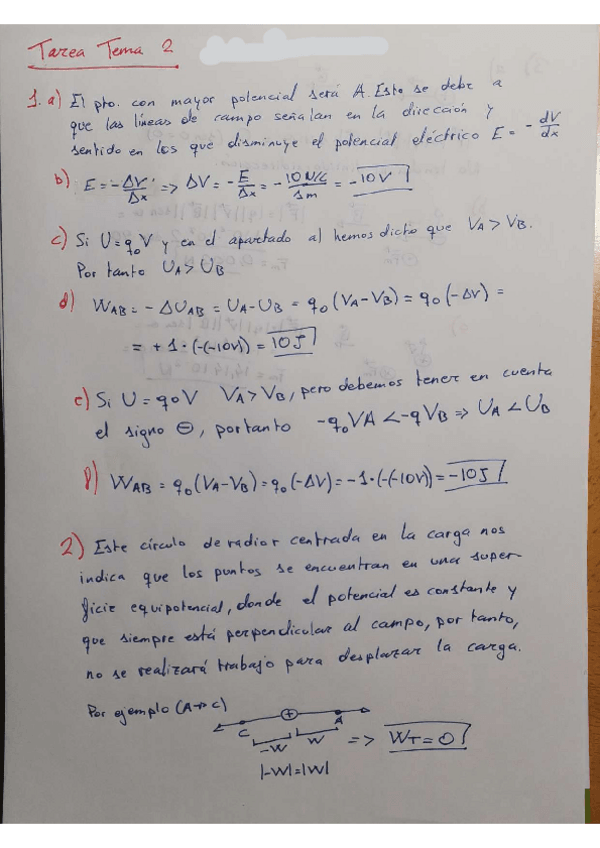 Tarea Tema 2
1. a) El pto. con mayor potencial será A. Esto se debe a
que las líneas de campo señalan en la dirección y
sentido en los que disminuye el potencial eléctrico E = - dV/dx
b) E = - ΔV/Δx => ΔV = - E/Δx = - 10 N/C / 1m = -10V
c) Si U = q₀V y en el apartado a) hemos dicho que VA > VB.
Por tanto UA > UB
d) WAB = - ΔUAB = UA - UB = q₀(VA - VB) = q₀(-ΔV) =
= + 1·(-(-10V)) = 10J
e) Si U = q₀V VA > VB, pero debemos tener en cuenta
el signo ⊖, portanto -q₀VA < -qVB => UA < UB
f) WAB = q₀(VA - VB) = q₀(-ΔV) = -1·(-(-10V)) = -10J
2) Este círculo de radio r centrada en la carga nos
indica que los puntos se encuentran en una super-
ficie equipotencial, donde el potencial es constante y
que siempre está perpendicular al campo, por tanto,
no se realizará trabajo para desplazar la carga.
Por ejemplo (A→C)
C + A
-W W => WT = 0
|-W| = |W|